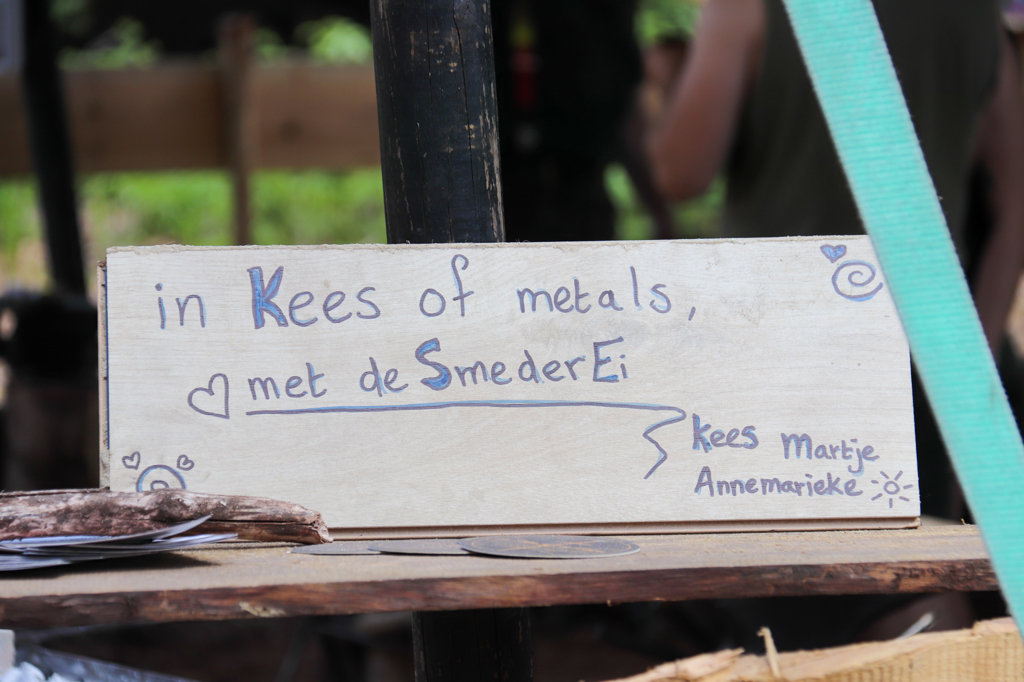 in Kees of metals,
met de SmederEi
Kees Martje
Annemarieke